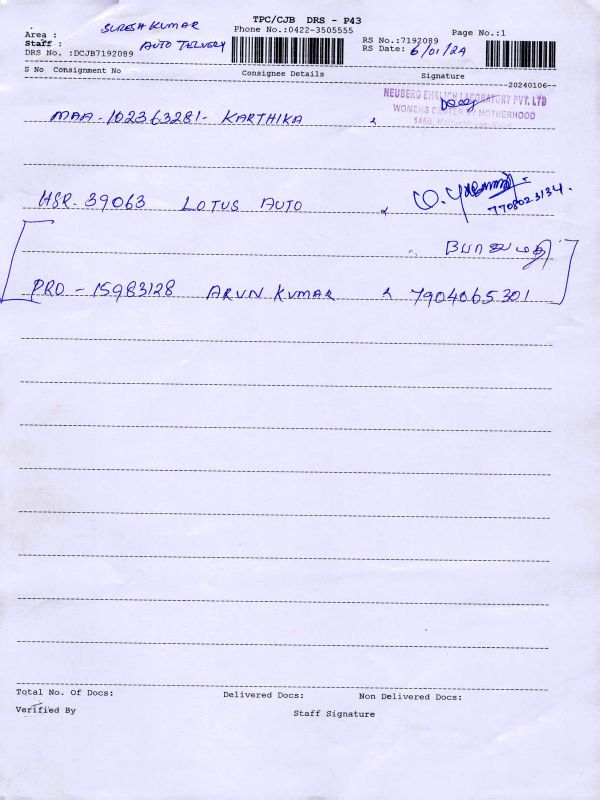 TPC/CJB DRS - P43
SURESH KUMAR
Area :
Phone No.:0422-3505555
RS No.:7192089
Page No.:1
Staff :
AUTO TELVERY
RS Date: 6/01/24
DRS No. :DCJB7192089
S No Consignment No
Consignee Details
Signature
20240106
NEUBERG EHRLICH LABORATORY PVT. LTD
WOMENS CENTER BY MOTHERHOOD
MAA-102363281- KARTHIKA
HSR- 39063 LOTUS AUTO
7708023134.
PRO - 15983128 ARUN KUMAR & 7904065301
Total No. Of Docs:
Delivered Docs:
Non Delivered Docs:
Verified By
Staff Signature